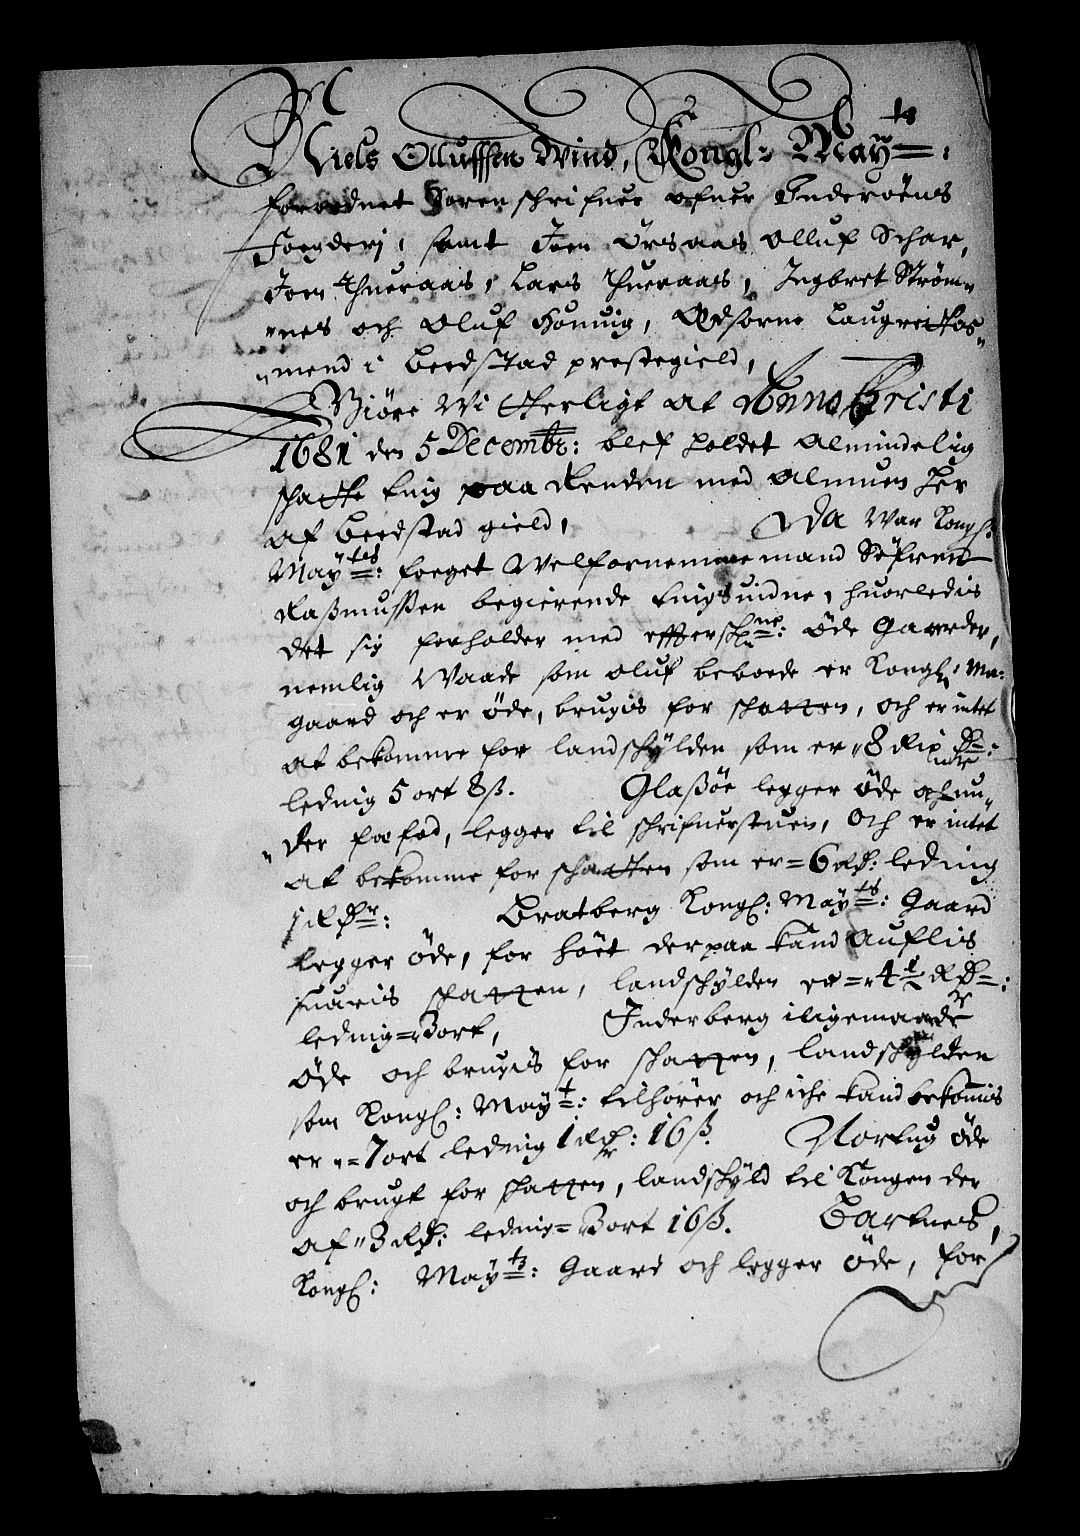 Niels Olluffsen Wind, Kongl: May:ts
forordnet Sorenschrifuer ofuer Inderöens
Foegderj, samt Joen Örsaas Olluf Schar,
Joen Thueraas, Lars Thueraas, Ingbret Ström¬
nes och Oluf Homuig, Edsorne Laugrettes¬
mend i Beedstad prestegield,
Giöre Wi Itterligt at Anno Christi
1681 den 5 Decembr: blef holdet Almindelig
schatte ting paa Renden med Almuen her
af Beedstad gield, Da War Kongl:
May:tes foeget Welfornemmemand Söfren
Raszmussen begierende tingsuidne, huorledis
det sig forholder med effterschr:ne Öde Gaarder,
nemlig Waade som oluf beboede er Kongl: Ma:
gaard och er öde, brugis for schatten, och er intet
at bekomme for landschylden som er 8 Rix dr:
leding 5 ort 8 ß. Glaßöe legger öde och un¬
der fæfod, legger til schrifuerstuen, Och er intet
at bekomme for schatten som er = 6 Rdr: leding
1 Rdr: Bratberg Kongl: May:ts Gaard
legger öde, for höet derpaa kand Auflis
suaris schatten, landschylden er = 4½ Rdr:
leding = 3 ort, Inderberg iligemaade
öde och brugis for schatten, landschylden
som Kongl: May:t tilhörer och iche kand bekommis
er = 7 ort leding 1 Rdr: 16 ß. Nortug öde
och brugt for schatten, landschyld til Kongen der
af 3 Rdr: leding = 3 ort 16 ß. Bartnes,
Kongl: May:ts Gaard och legger öde, for